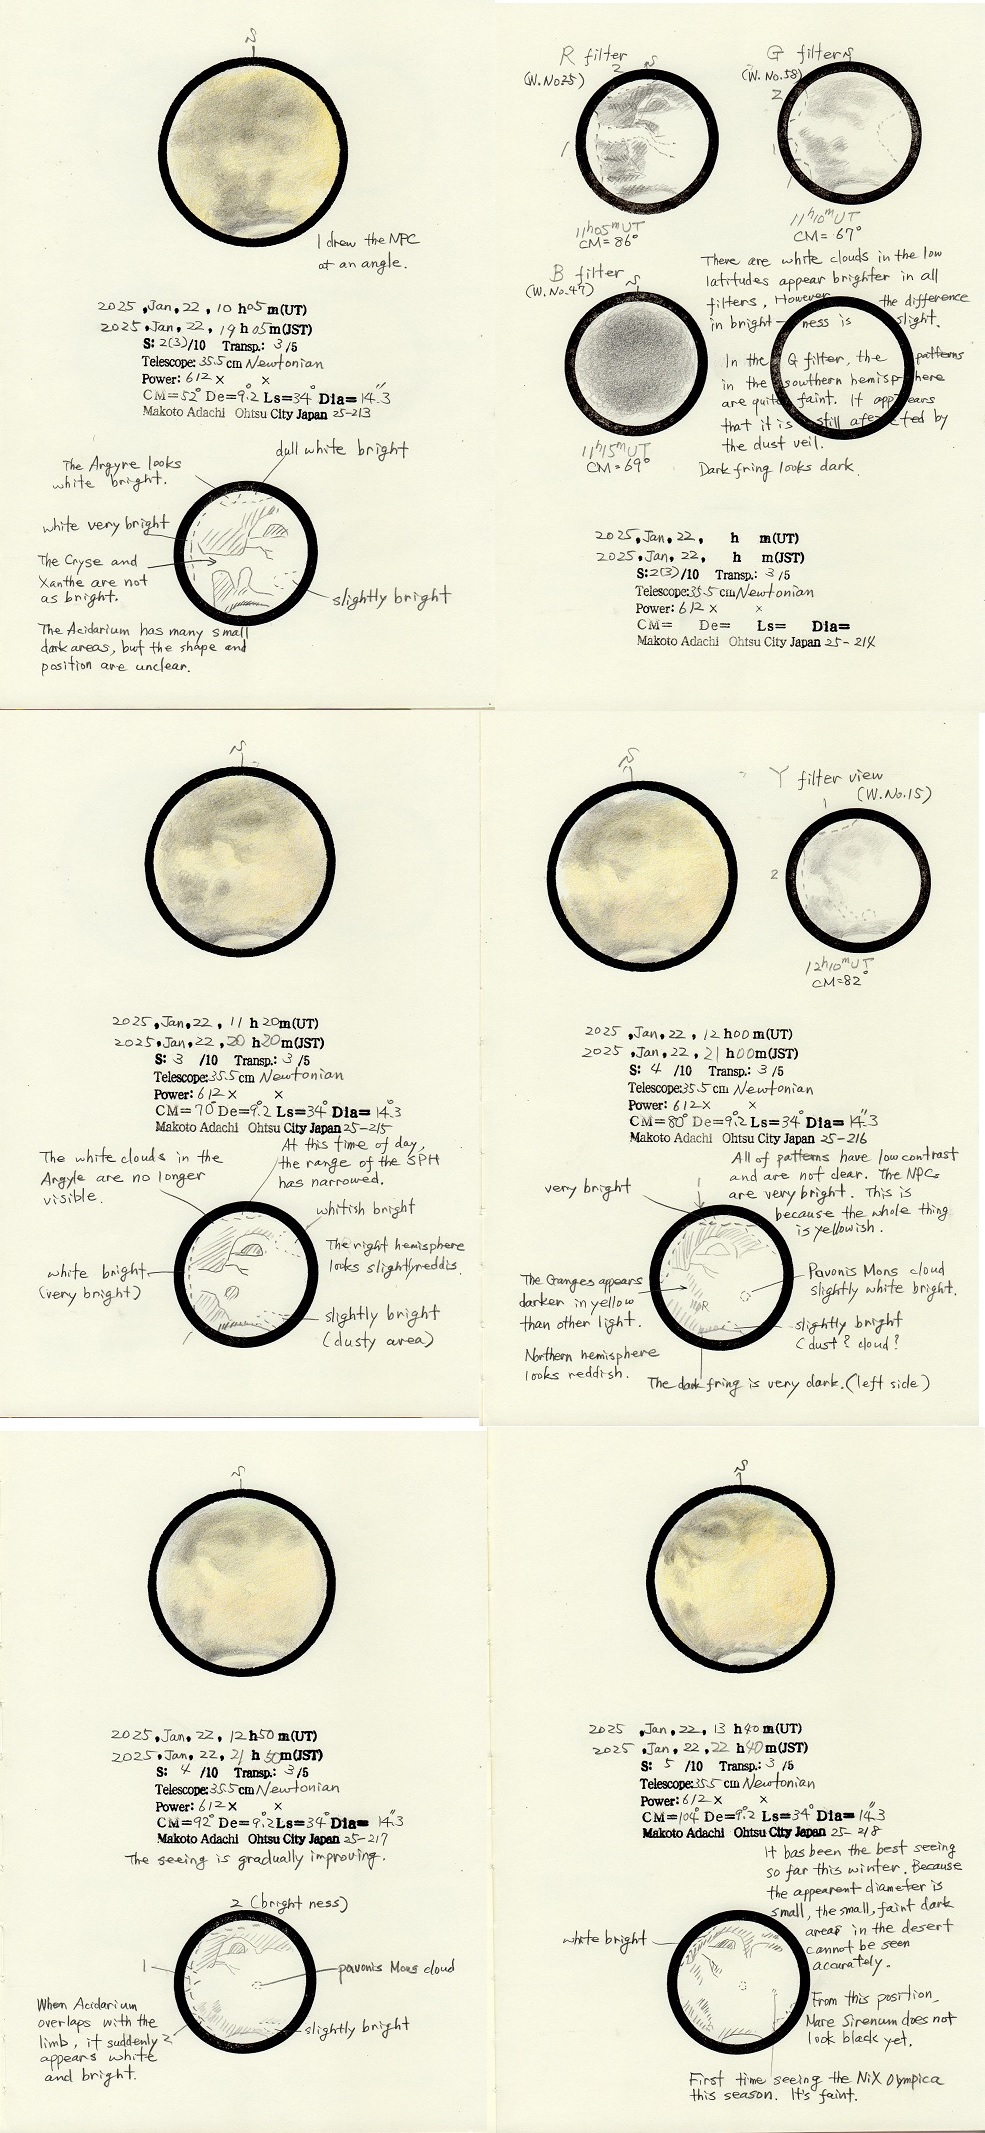 S
I drew the NPC
at an angle.
2025, Jan, 22, 10 h 05 m(UT)
2025, Jan, 22, 19 h 05 m(JST)
S: 2(3)/10 Transp.: 3 /5
Telescope: 35.5 cm Newtonian
Power: 612 × ×
CM=52° De=9.°2 Ls=34° Dia=14."3
Makoto Adachi Ohtsu City Japan 25-213
dull white bright
The Argyre looks
white bright.
white very bright
The Cryse and
Xanthe are not
as bright.
slightly bright
The Acidarium has many small
dark areas, but the shape and
position are unclear.
R filter
(W.No25)
2
S
1
11h05mUT
CM=86°
G filter
S
(W.No.58)
2
11h10mUT
CM=67°
B filter
(W.No.47)
S
11h15mUT
CM=69°
There are white clouds in the low
latitudes appear brighter in all
filters, However the difference
in bright-ness is slight.
In the G filter, the patterns
in the southern hemisphere
are quite faint. It appears
that it is still afected by
the dust veil.
Dark fring looks dark.
2025, Jan, 22, h m(UT)
2025, Jan, 22, h m(JST)
S: 2(3)/10 Transp.: 3 /5
Telescope: 35.5 cm Newtonian
Power: 612 × ×
CM= De= Ls= Dia=
Makoto Adachi Ohtsu City Japan 25-214
S
2025, Jan, 22, 11 h 20 m(UT)
2025, Jan, 22, 20 h 20 m(JST)
S: 3 /10 Transp.: 3 /5
Telescope: 35.5 cm Newtonian
Power: 612 × ×
CM=70° De=9.°2 Ls=34° Dia=14.3
Makoto Adachi Ohtsu City Japan 25-215
At this time of day,
the range of the SPH
has narrowed.
The white clouds in the
Argyle are no longer
visible.
whitish bright
The right hemisphere
looks slightlyreddis.
white bright
(very bright)
slightly bright
(dusty area)
S
Y filter view
(W.No.15)
1
2
12h10mUT
CM=82°
2025, Jan, 22, 12 h 00 m(UT)
2025, Jan, 22, 21 h 00 m(JST)
S: 4 /10 Transp.: 3 /5
Telescope: 35.5 cm Newtonian
Power: 612 × ×
CM=80° De=9.°2 Ls=34° Dia=14."3
Makoto Adachi Ohtsu City Japan 25-216
All of patterns have low contrast
and are not clear. The NPCs
are very bright. This is
because the whole thing
is yellowish.
very bright
The Granges appears
darker in yellow
than other light.
Pavonis Mons cloud
slightly white bright.
R
slightly bright
(dust? cloud?
Northern hemisphere
looks reddish.
The dark fring is very dark.(left side)
S
2025, Jan, 22, 12 h 50 m(UT)
2025, Jan, 22, 21 h 50 m(JST)
S: 4 /10 Transp.: 3 /5
Telescope: 35.5 cm Newtonian
Power: 612 × ×
CM=92° De=9.°2 Ls=34° Dia=14."3
Makoto Adachi Ohtsu City Japan 25-217
The seeing is gradually improving.
2 (bright ness)
1
pavonis Mons cloud
When Acidarium
overlaps with the
limb, it suddenly 2
appears white
and bright.
slightly bright
S
2025, Jan, 22, 13 h 40 m(UT)
2025, Jan, 22, 22 h 40 m(JST)
S: 5 /10 Transp.: 3 /5
Telescope: 35.5 cm Newtonian
Power: 612 × ×
CM=104° De=9.°2 Ls=34° Dia=14."3
Makoto Adachi Ohtsu City Japan 25-218
It has been the best seeing
so far this winter. Because
the appearent diameter is
small, the small, faint dark
areas in the desert
cannot be seen
accurately.
white bright
From this position,
Mare Sirenum does not
look black yet.
First time seeing the NiX Olympica
this season. It's faint.